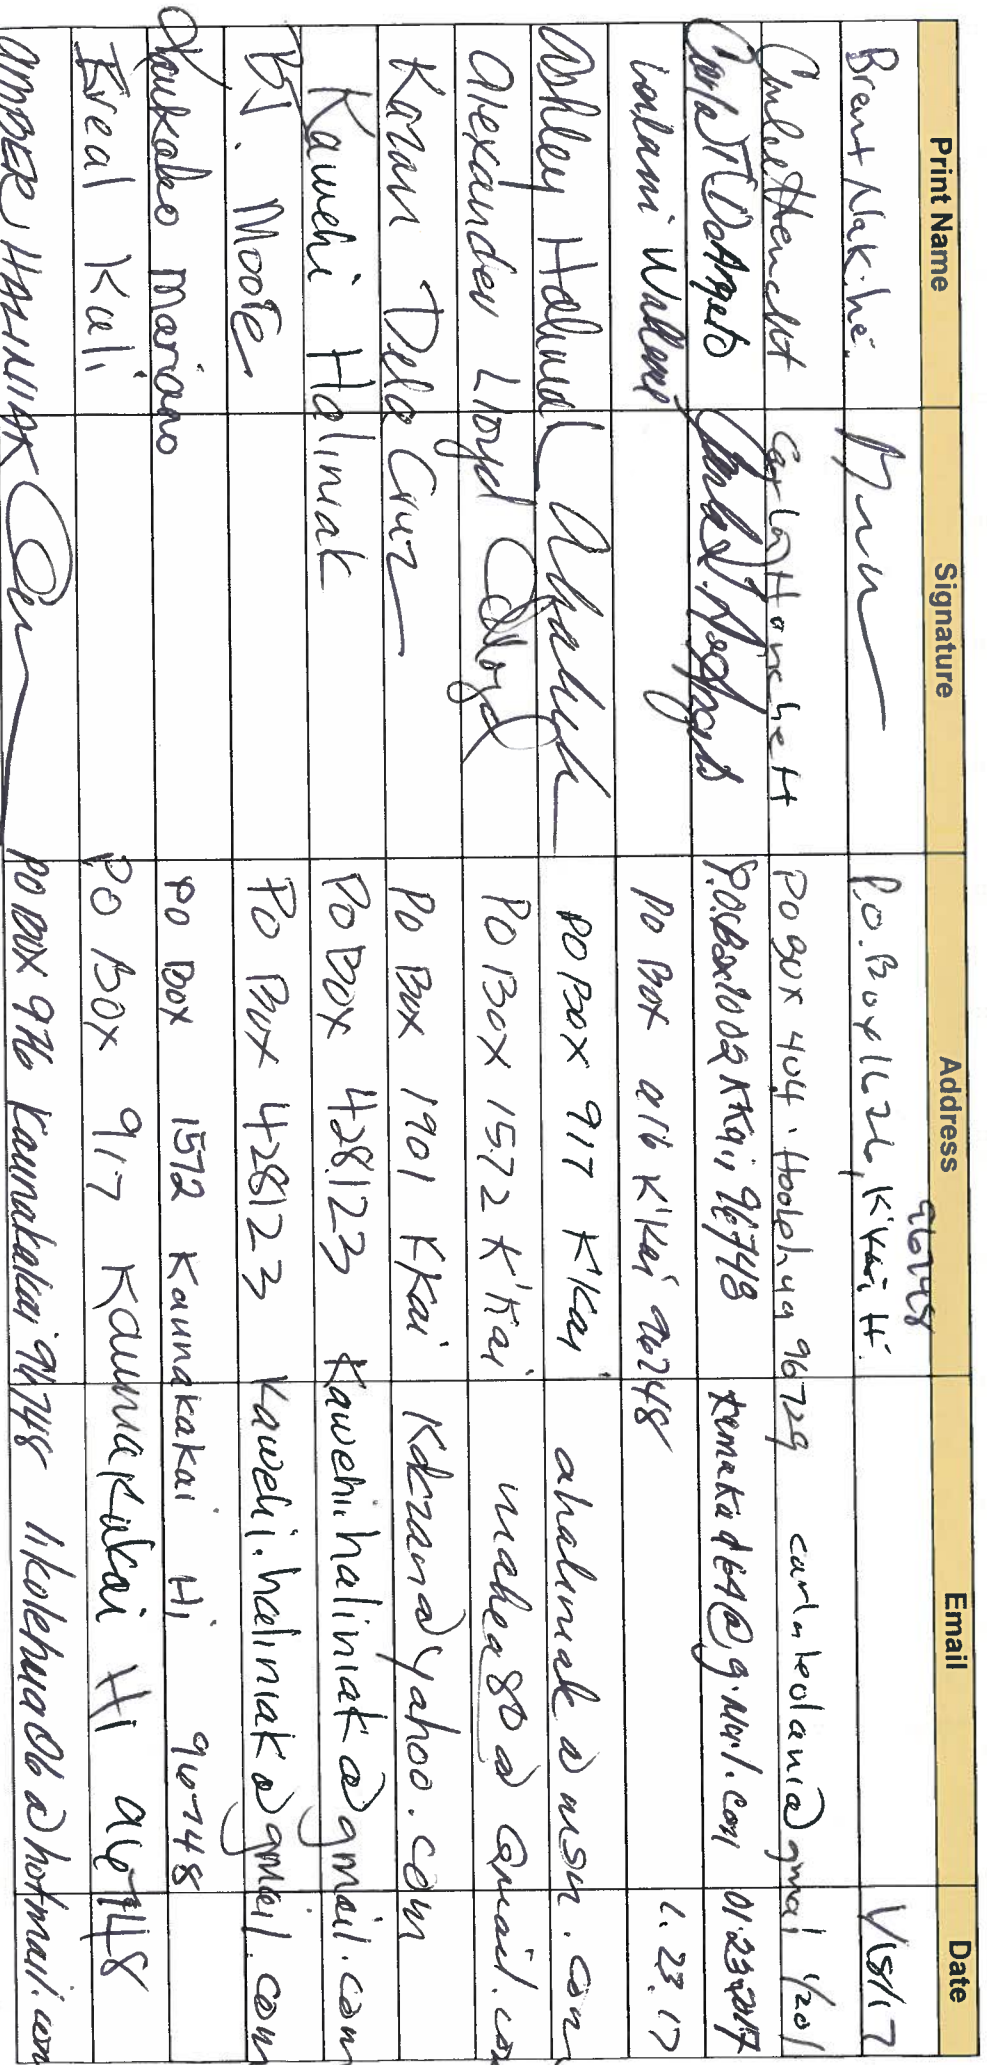 Print Name Signature Address Email Date
96748
Brent Nakihei P.O. Box 1626, K'Kai Hi 1/15/17
Carla Hanchett Carla Hanchett PO BOX 404 Hoolehua 96729 carlaleolani@gmail 1/20/
P.O. Box 1002 KKai, 96748 kemakad64@gmail.com 01.23.2017
Iolani PO Box 916 K'Kai 96748 1.23.17
Ashley Haliniak PO BOX 917 K'Kai ahaliniak@msn.com
Alexander Lloyd PO BOX 1572 K'Kai mahea80@gmail.co
Kazan Dela Cruz PO Box 1901 KKai Kdczan@yahoo.com
Kawehi Haliniak PO Box 428123 Kawehi.haliniak@gmail.com
BJ. Moore PO Box 428123 Kawehi.haliniak@gmail.com
Mariano PO Box 1572 Kaunakakai Hi 96748
Isreal Kali PO Box 917 Kaunakakai Hi 96748
AMBER HALINIAK PO BOX 976 Kaunakakai 96748 likolehua06@hotmail.com